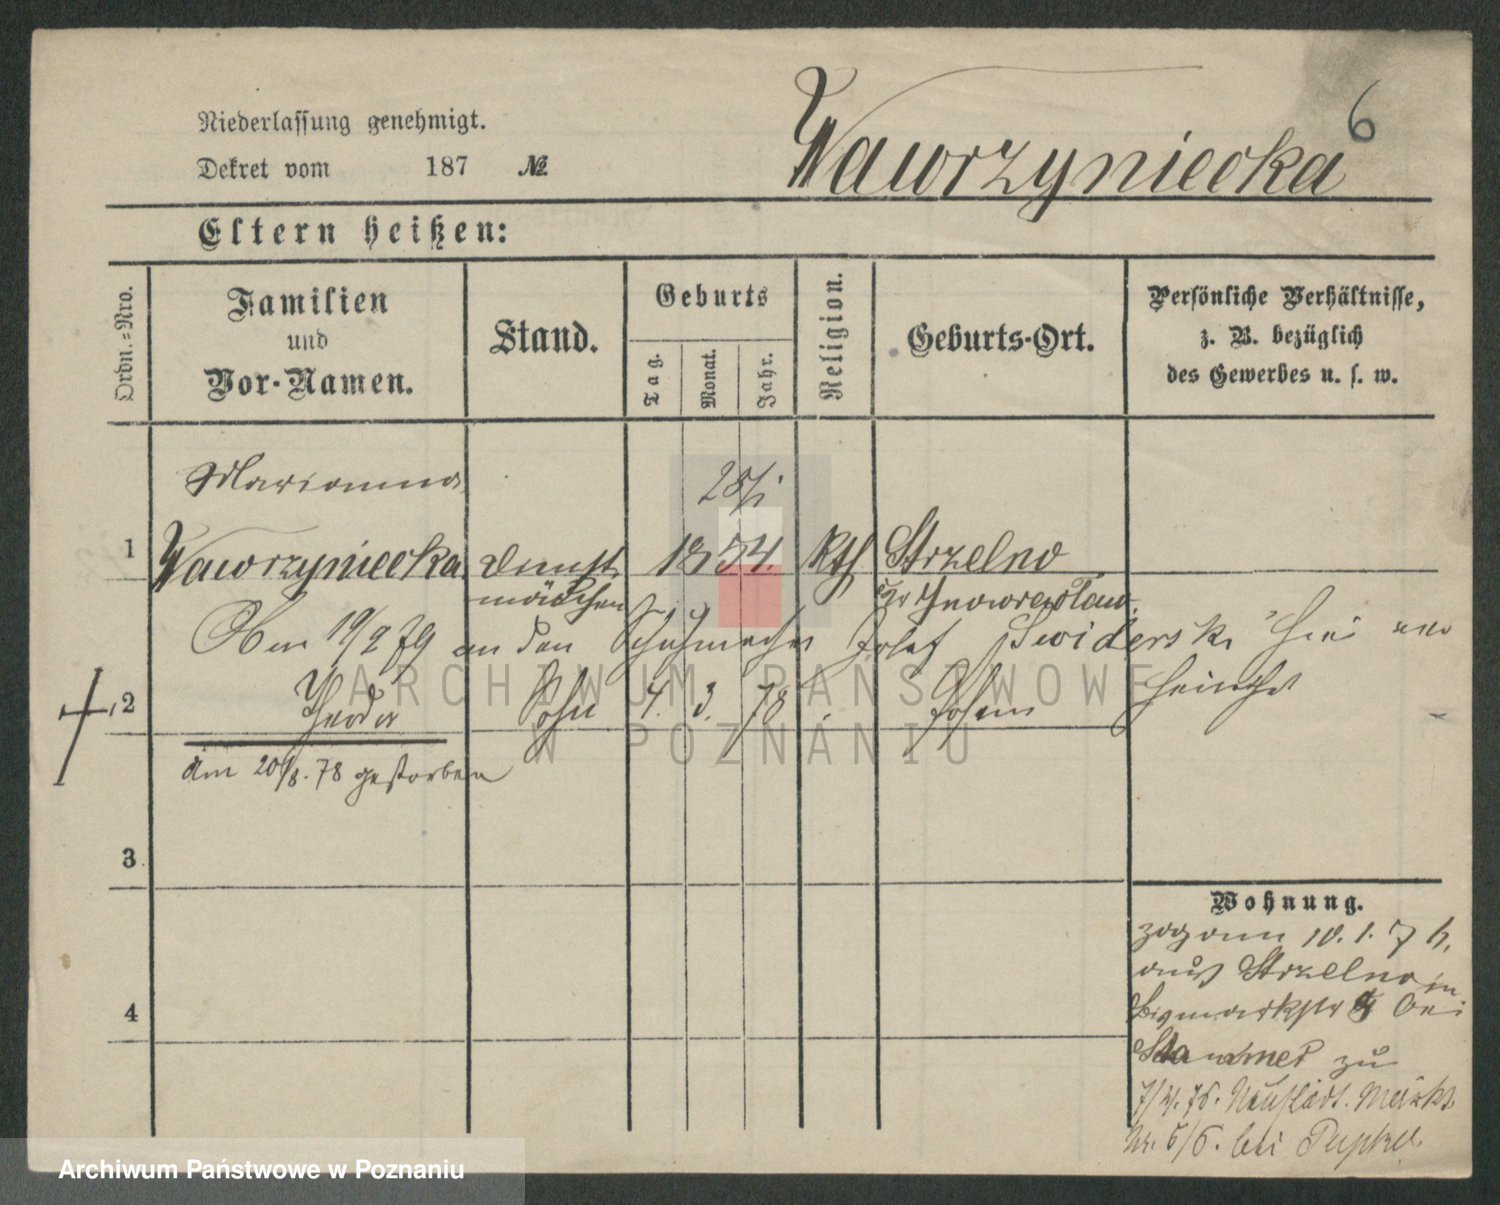 6
Wawrzyniecka
Niederlassung genehmigt.
Dekret vom 187 №
Eltern heißen:
Ordn.-Nro.
Familien
und
Vor-Namen.
Stand.
Geburts
Tag.
Monat.
Jahr.
Religion.
Geburts-Ort.
Persönliche Verhältnisse,
z. B. bezüglich
des Gewerbes u. s. w.
Marianna 28/1
1 Wawrzyniecka Dienst 1854. Kth Strzelno
mädchen Kr Inowraclaw.
Am 19/2 79 an den Schuhmacher Josef Swiderski hier
2 Theodor Sohn 4. 3. 78 . Posen
am 20/8. 78 gestorben
3
4
Wohnung.
zog am 10. 1. 76.
aus Strzelno in
Bismarkstr bei
zu
Neustädt. Markt
Nr. 5/6. bei
ARCHIWUM PAŃSTWOWE
W POZNANIU
Archiwum Państwowe w Poznaniu